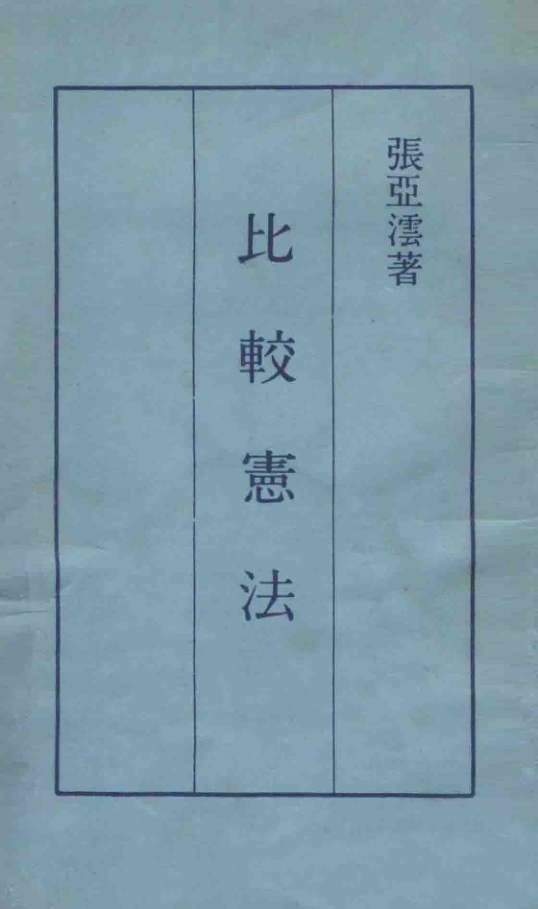 張亞澐著
比較憲法